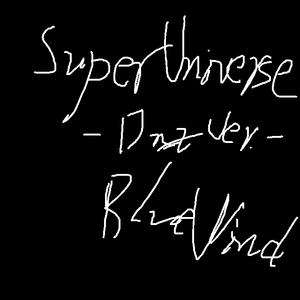 Super Universe
- Dnz Ver. -
Blue Vind